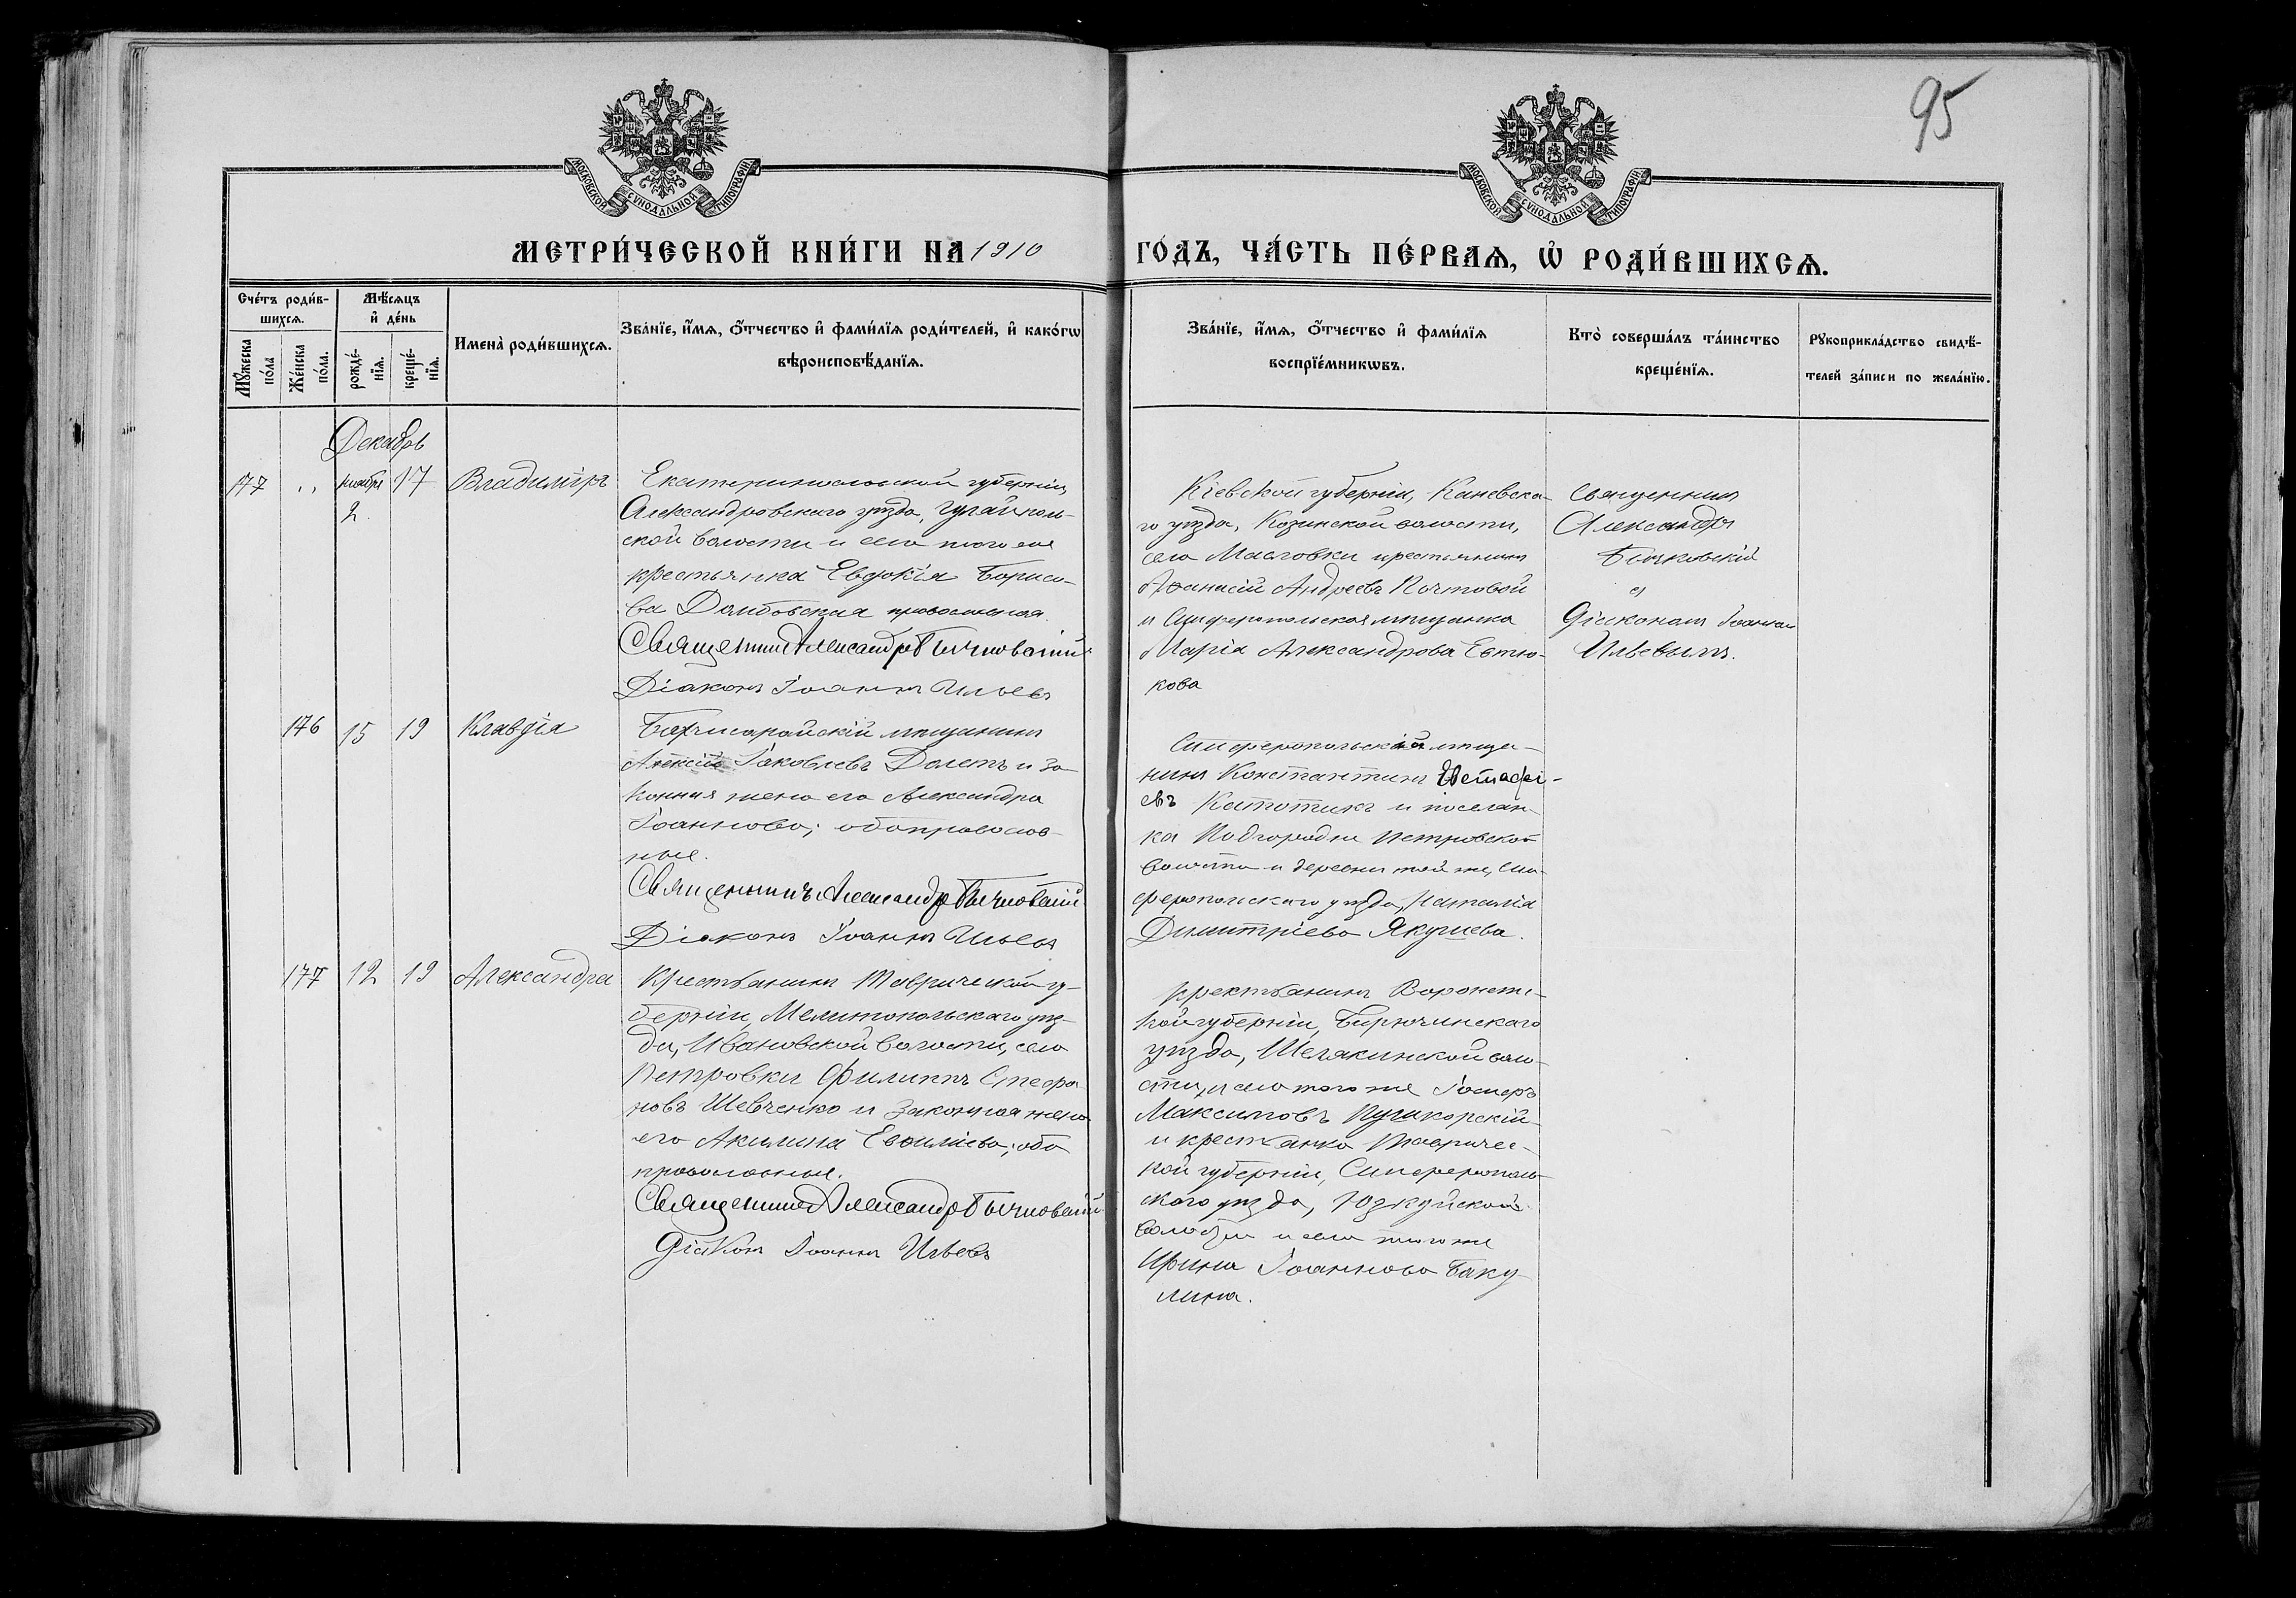 95
МОСКОВСКОЙ СѴНОДАЛЬНОЙ ТИПОГРАФІИ
МОСКОВСКОЙ СѴНОДАЛЬНОЙ ТИПОГРАФІИ
МЕТРИ́ЧЕСКОЙ КНИ́ГИ НА 1910 ГО́ДЪ, ЧА́СТЬ ПЕ́РВАѦ, Ѡ҆ РОДИ́ВШИХСѦ.
Сче́тъ роди́в-
шихсѧ.
Мѹ́жеска по́ла
Же́нска по́ла.
Мѣ́сѧцъ
и҆ де́нь
рожде́-
нїѧ.
креще́-
нїѧ.
Имена̀ роди́вшихсѧ.
Зва́нїе, и҆́мѧ, ѻ҆́тчество и҆ фами́лїѧ роди́телей, и҆ како́гѡ
вѣроисповѣ́данїѧ.
Зва́нїе, и҆́мѧ, ѻ҆́тчество и҆ фами́лїѧ
воспрїе́мникѡвъ.
Кто̀ соверша́лъ та́инство
креще́нїѧ.
Рꙋкоприкла́дство свидѣ́-
телей за́писи по жела́нїю.
Декабрь
177 " ноября 2. 17 Владиміръ
Екатеринославской губерніи,
Александровскаго уѣзда, Гуляйполь-
ской волости и села того же
крестьянка Евдокія Борисо-
ва Домбовская православная.
Священникъ Александръ Бычковскій
Діаконъ Іоаннъ Ильевъ
Кіевской губерніи, Каневска-
го уѣзда, Козинской волости,
села Масловки крестьянинъ
Аѳанасій Андреевъ Почтовой
и Симферопольская мѣщанка
Марія Александрова Евтю-
кова
Священникъ
Александръ
Бычковскій
съ
Діакономъ Іоанномъ
Ильевымъ.
176 15 19 Клавдія
Бахчисарайскій мѣщанинъ
Алексій Іаковлевъ Долетъ и за-
конная жена его Александра
Іоаннова; оба православ-
ные.
Священникъ Александръ Бычковскій
Діаконъ Іоаннъ Ильевъ
Симферопольскій мѣща-
нинъ Константинъ Евстафі-
евъ и поселян-
ка Подгородне Петровской
волости и деревни той же, Сим-
феропольскаго уѣзда, Наталія
Димитріева Якушева.
177 12 19 Александра
Крестьянинъ Таврической гу-
берніи, Мелитопольскаго уѣз-
да, Ивановской волости, села
Петровки Филиппъ Стефа-
новъ Шевченко и законная жена
его Акилина Евѳиміева; оба
православные.
Священникъ Александръ Бычковскій
Діаконъ Іоаннъ Ильевъ
Крестьянинъ Воронежс-
кой губерніи, Бирюченскаго
уѣзда, Шелякинской воло-
сти, и села того же Іосифъ
Максимовъ Пушкорскій
и крестьянка Тавричес-
кой губерніи, Симферополь-
скаго уѣзда, Юзкуйской
волости и села того же
Ирина Іоаннова Баку-
лина.